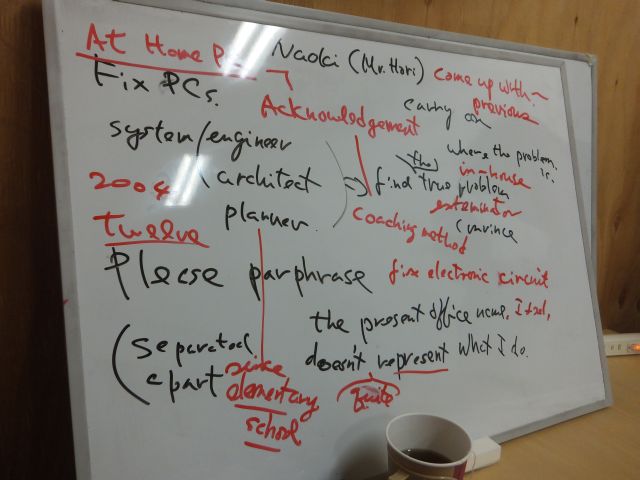 At Home PC Naoki (Mr. Hori) come up with~
Fix PCs. carry on previous
Acknowledgement
system/engineer where the problem is.
(the) in-house
2004 architect find true problem
exterminator
planner. coaching method convince
twelve
Please parphrase fine electronic circuit
the present office name, I feel,
(separated doesn't represent what I do.
apart since quite
elementary
school